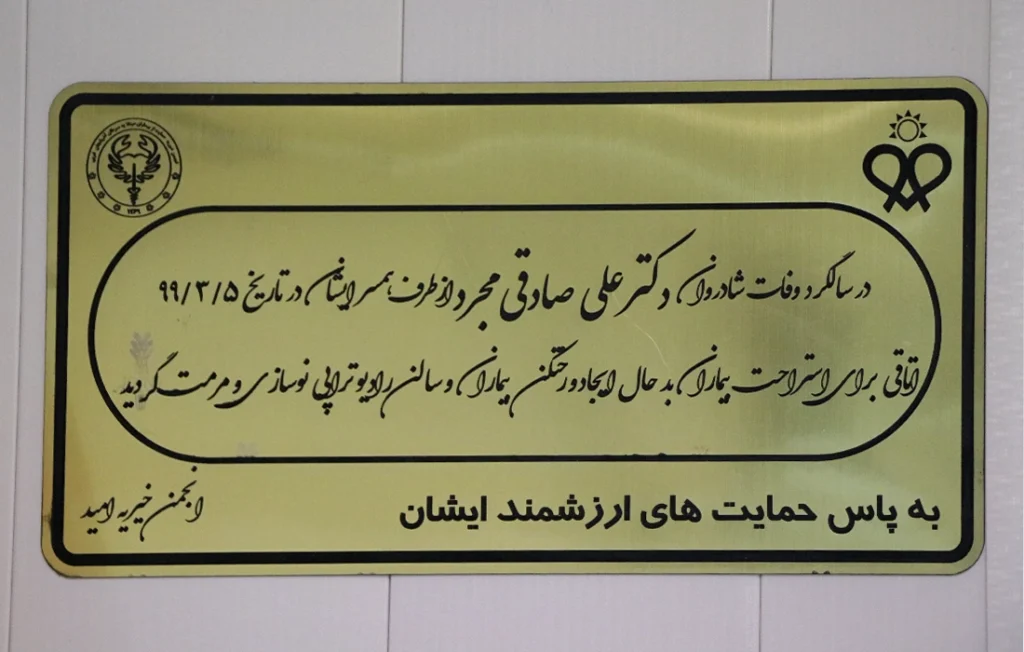 در سالگرد وفات شادروان دکتر علی صادقی مجرد از طرف همسر ایشان در تاریخ ۹۹/۳/۵
اتاقی برای استراحت بیماران بد حال ایجاد و رختکن بیماران و سالن رادیوتراپی نوسازی و مرمت گردید
به پاس حمایت های ارزشمند ایشان
انجمن خیریه امید